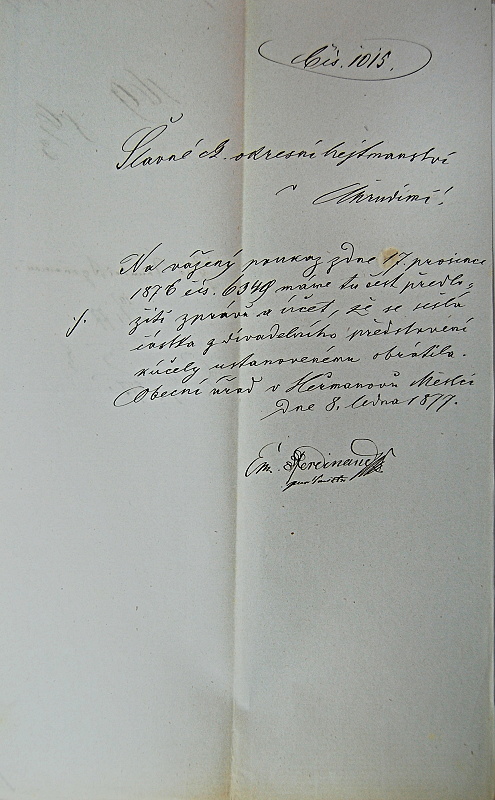 Čís. 1015.
Slavné ck. okresní hejtmanství
v Chrudimi!
Na vážený poukaz ze dne 17. prosince
1876 čís. 6949 máme tu čest předlo-
./. žiti zprávu a účet, že se celá
částka z divadelního představení
k účely ustanovenemu obrátila.
Obecní úřad v Heřmanovu Městci
dne 8. ledna 1877.
Em. Ferdinand